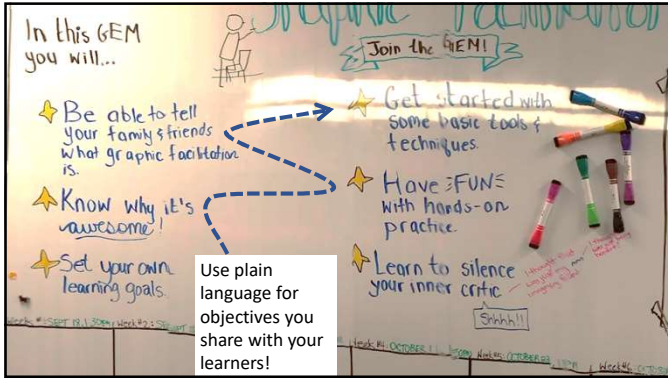 In this GEM
you will...
Be able to tell
your family & friends
what graphic facilitation
is.
Know why it's
awesome!
Set your own
learning goals.
Join the GEM!
Get started with
some basic tools &
techniques.
Have FUN
with hands-on
practice.
Learn to silence
your inner critic
Shhhh!!
Use plain
language for
objectives you
share with your
learners!